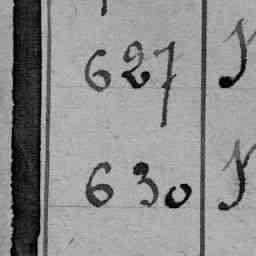 627
630